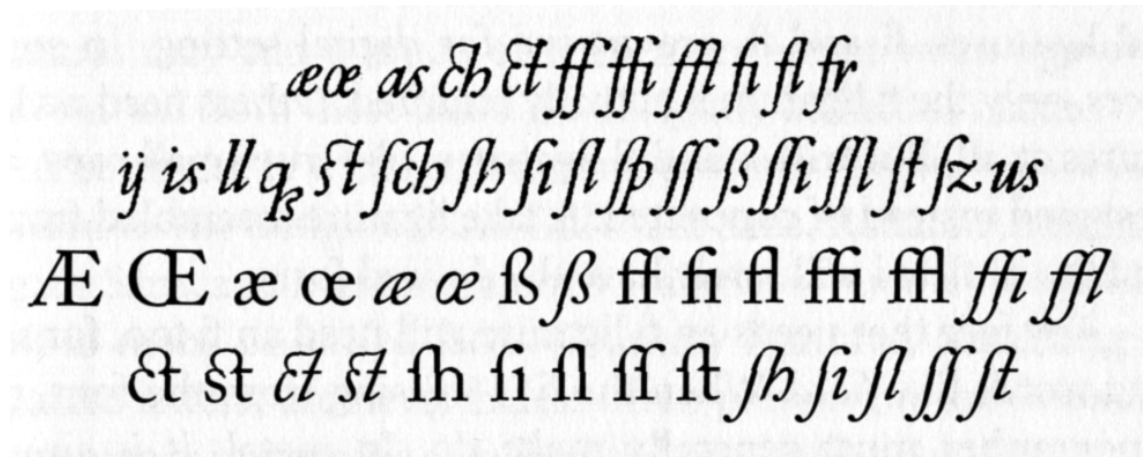 æ œ as ch ct ff ffi ffl fi fl fr
ij is ll qs st ſch ſh ſi ſl ſp ſſ ß ſſi ſſl ſt ſz us
Æ Œ æ œ æ œ ß ß ff fi fl ffi ffl ffi ffl
ct st ct st ſh ſi ſl ſt ſh ſi ſl ſſ ſt